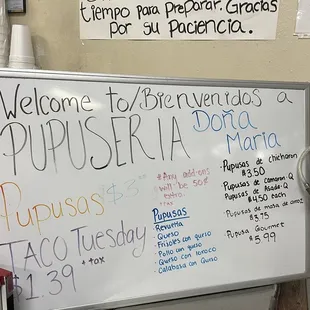 tiempo para Preparar. Gracias
por su Paciencia.
Welcome to/Bienvenidos a
PUPUSERIA Doña
Maria
Pupusas $3
*Any add-ons
will be 50¢
extra.
***
TACO Tuesday
$1.39 + tax
Pupusas
Revuelta
Queso
Frijoles con queso
Pollo con queso
Queso con loroco
Calabasa con Queso
Pupusas de chicharron
$3.50
Pupusas de camaron Q
de Asada-Q
$4.50 each
Pupusas de masa de arroz
$3.75
Pupusa Gourmet
$5.99